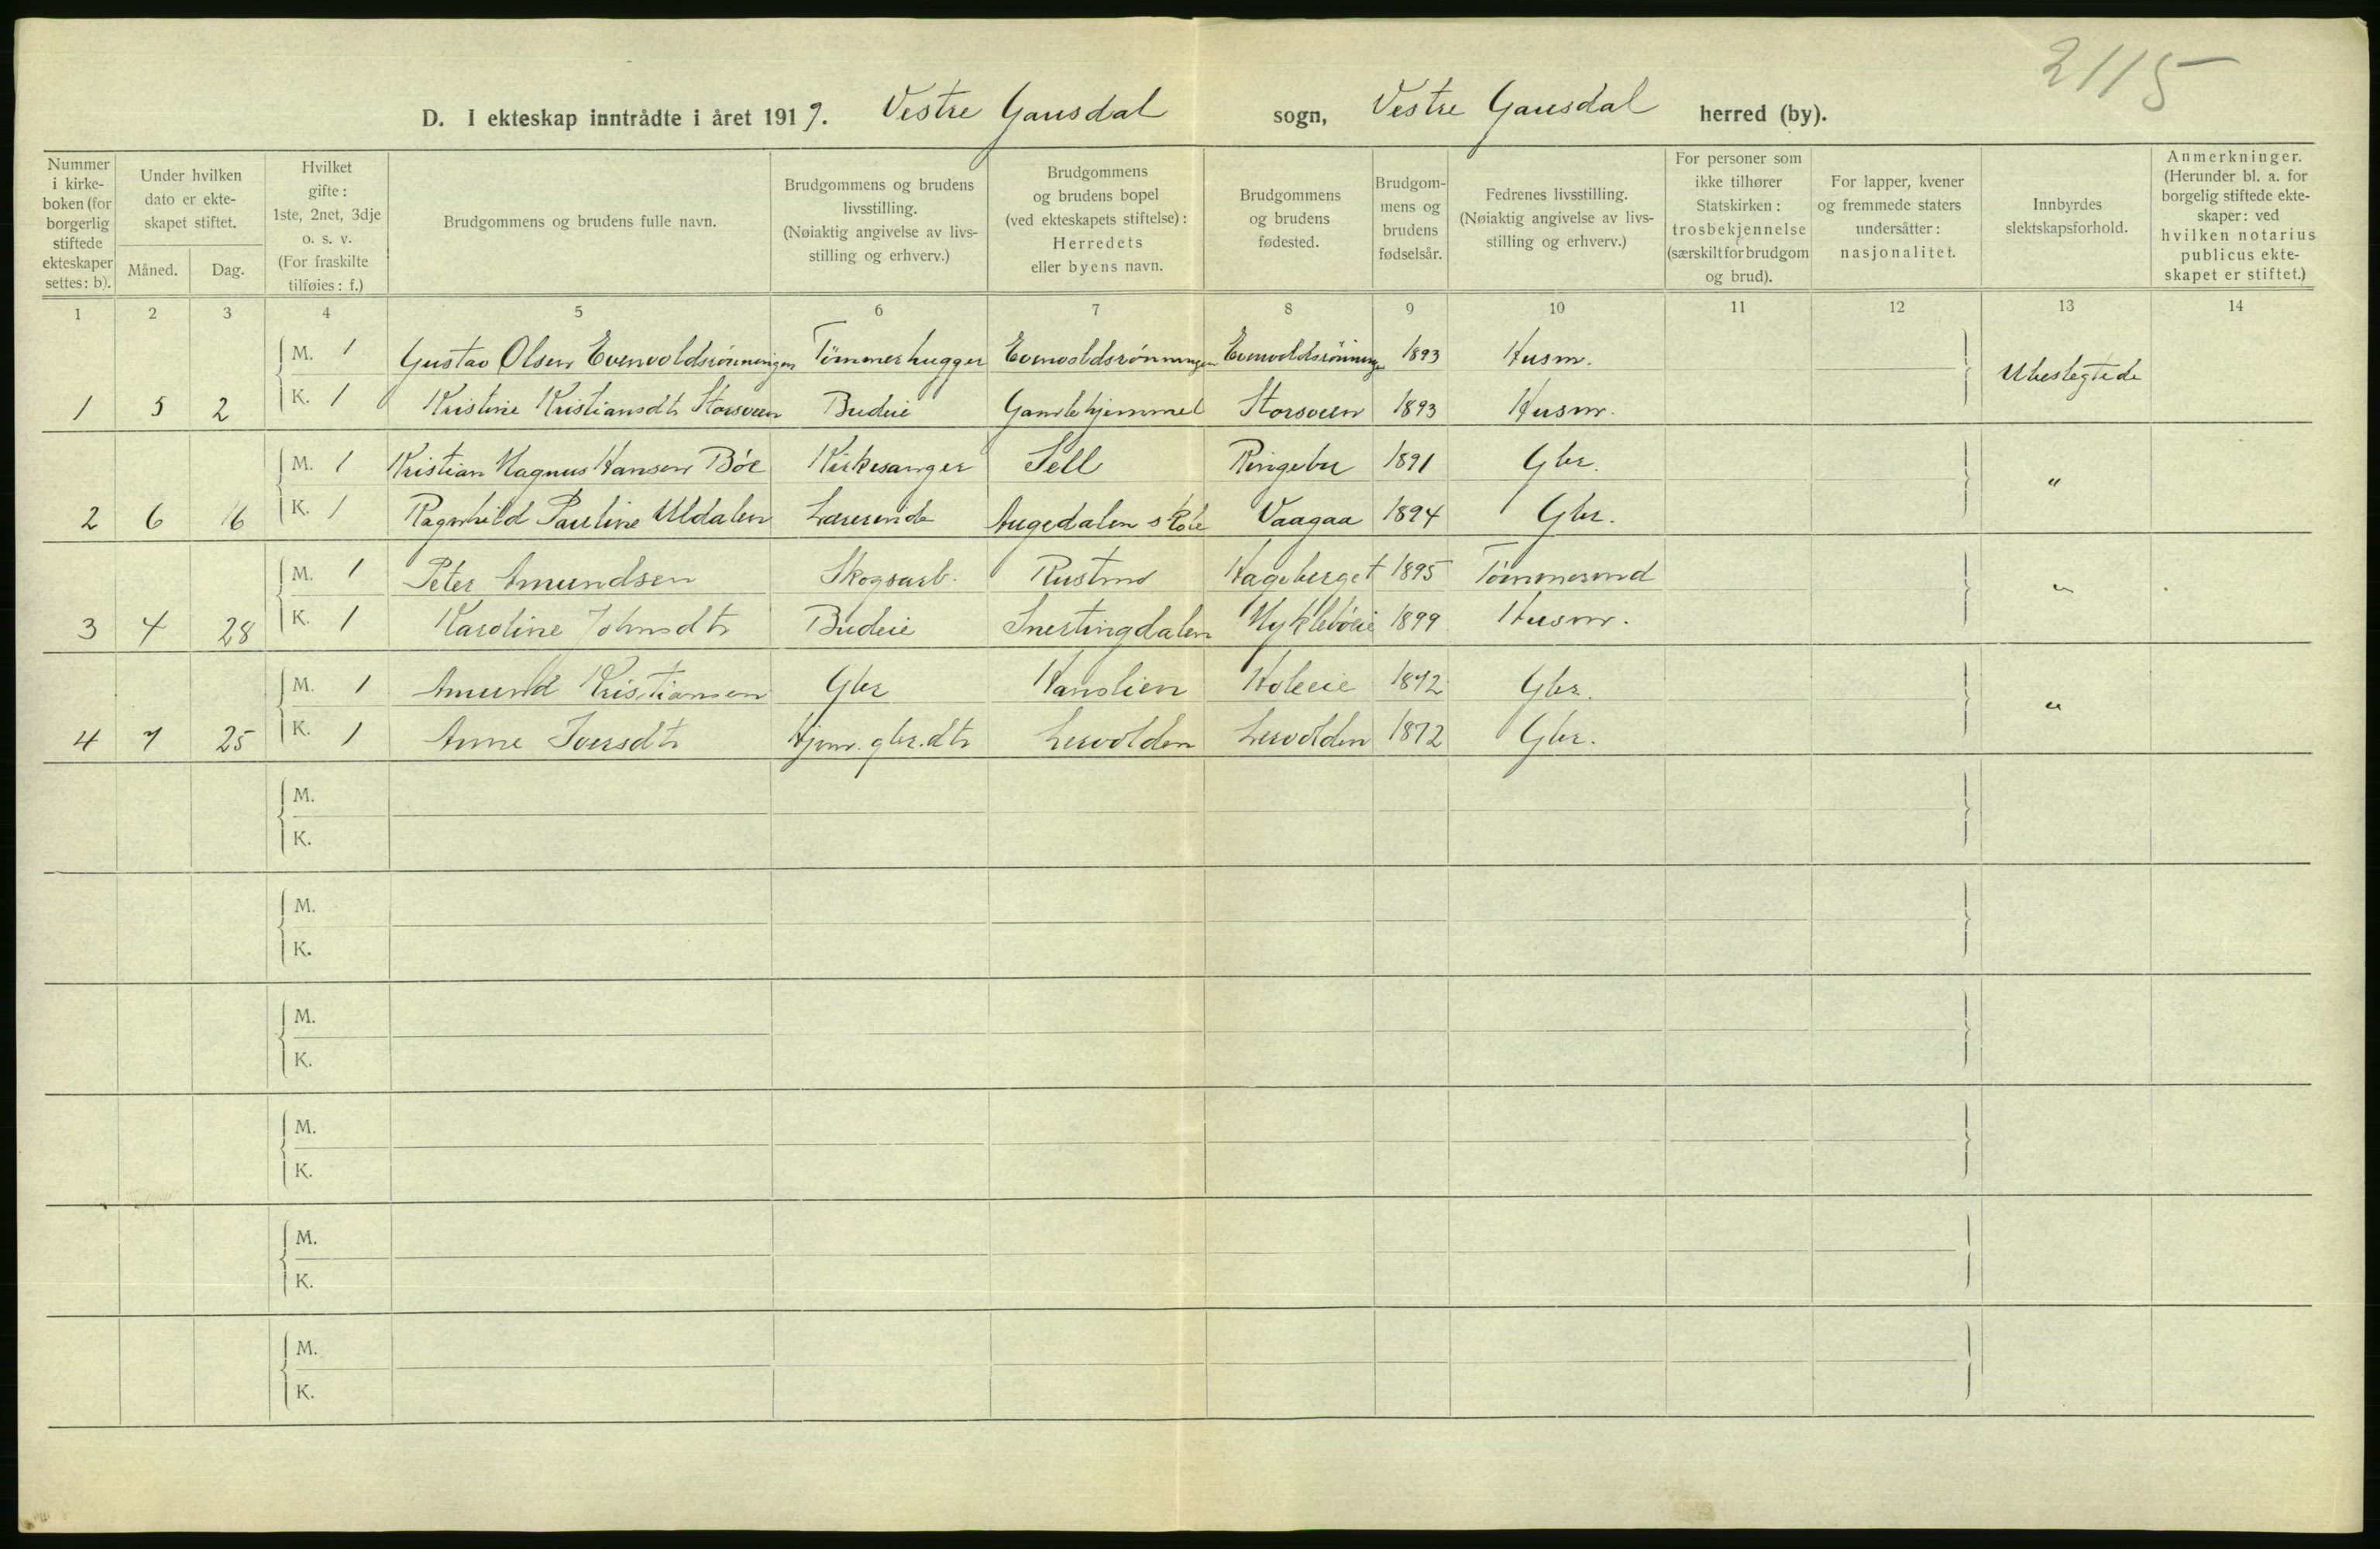 2115
D. I ekteskap inntrådte i året 1919. Vestre Gausdal sogn, Vestre Gausdal herred (by).
Nummer i kirke-boken (for borgerlig stiftede ekteskaper settes: b).
Under hvilken dato er ekte-skapet stiftet.
Måned. Dag.
Hvilket gifte: 1ste, 2net, 3dje o. s. v. (For fraskilte tilføies: f.)
Brudgommens og brudens fulle navn.
Brudgommens og brudens livsstilling. (Nøiaktig angivelse av livs-stilling og erhverv.)
Brudgommens og brudens bopel (ved ekteskapets stiftelse): Herredets eller byens navn.
Brudgommens og brudens fødested.
Brudgom-mens og brudens fødselsår.
Fedrenes livsstilling. (Nøiaktig angivelse av livs-stilling og erhverv.)
For personer som ikke tilhører Statskirken: trosbekjennelse (særskilt for brudgom og brud).
For lapper, kvener og fremmede staters undersåtter: nasjonalitet.
Innbyrdes slektskapsforhold.
Anmerkninger. (Herunder bl. a. for borgelig stiftede ekte-skaper: ved hvilken notarius publicus ekte-skapet er stiftet.)
1 2 3 4 5 6 7 8 9 10 11 12 13 14
M. 1 Gustav Olsen Evenvoldsrønningen Tømmerhugger Evenvoldsrønningen Evenvoldsrønningen 1893 Husm. Ubeslegtede
1 5 2 K. 1 Kristine Kristiansdtr Storsveen Budeie Gamlehjemmet Storsveen 1893 Husm.
M. 1 Kristian Magnus Hansen Bøe Kirkesanger Sell Ringebu 1891 Gbr. "
2 6 16 K. 1 Ragnhild Pauline Uldalen Lærerinde Augedalen skole Vaagaa 1894 Gbr.
M. 1 Peter Amundsen Skogsarb. Rustmo Hageberget 1895 Tømmermd "
3 4 28 K. 1 Karoline Johnsdtr Budeie Snertingdalen Myklebøeie 1899 Husm.
M. 1 Amund Kristiansen Gbr Kanslien Holeeie 1872 Gbr. "
4 7 25 K. 1 Anne Iversdtr Hjem. gbr.dtr Lervolden Lervolden 1872 Gbr.
M.
K.
M.
K.
M.
K.
M.
K.
M.
K.
M.
K.